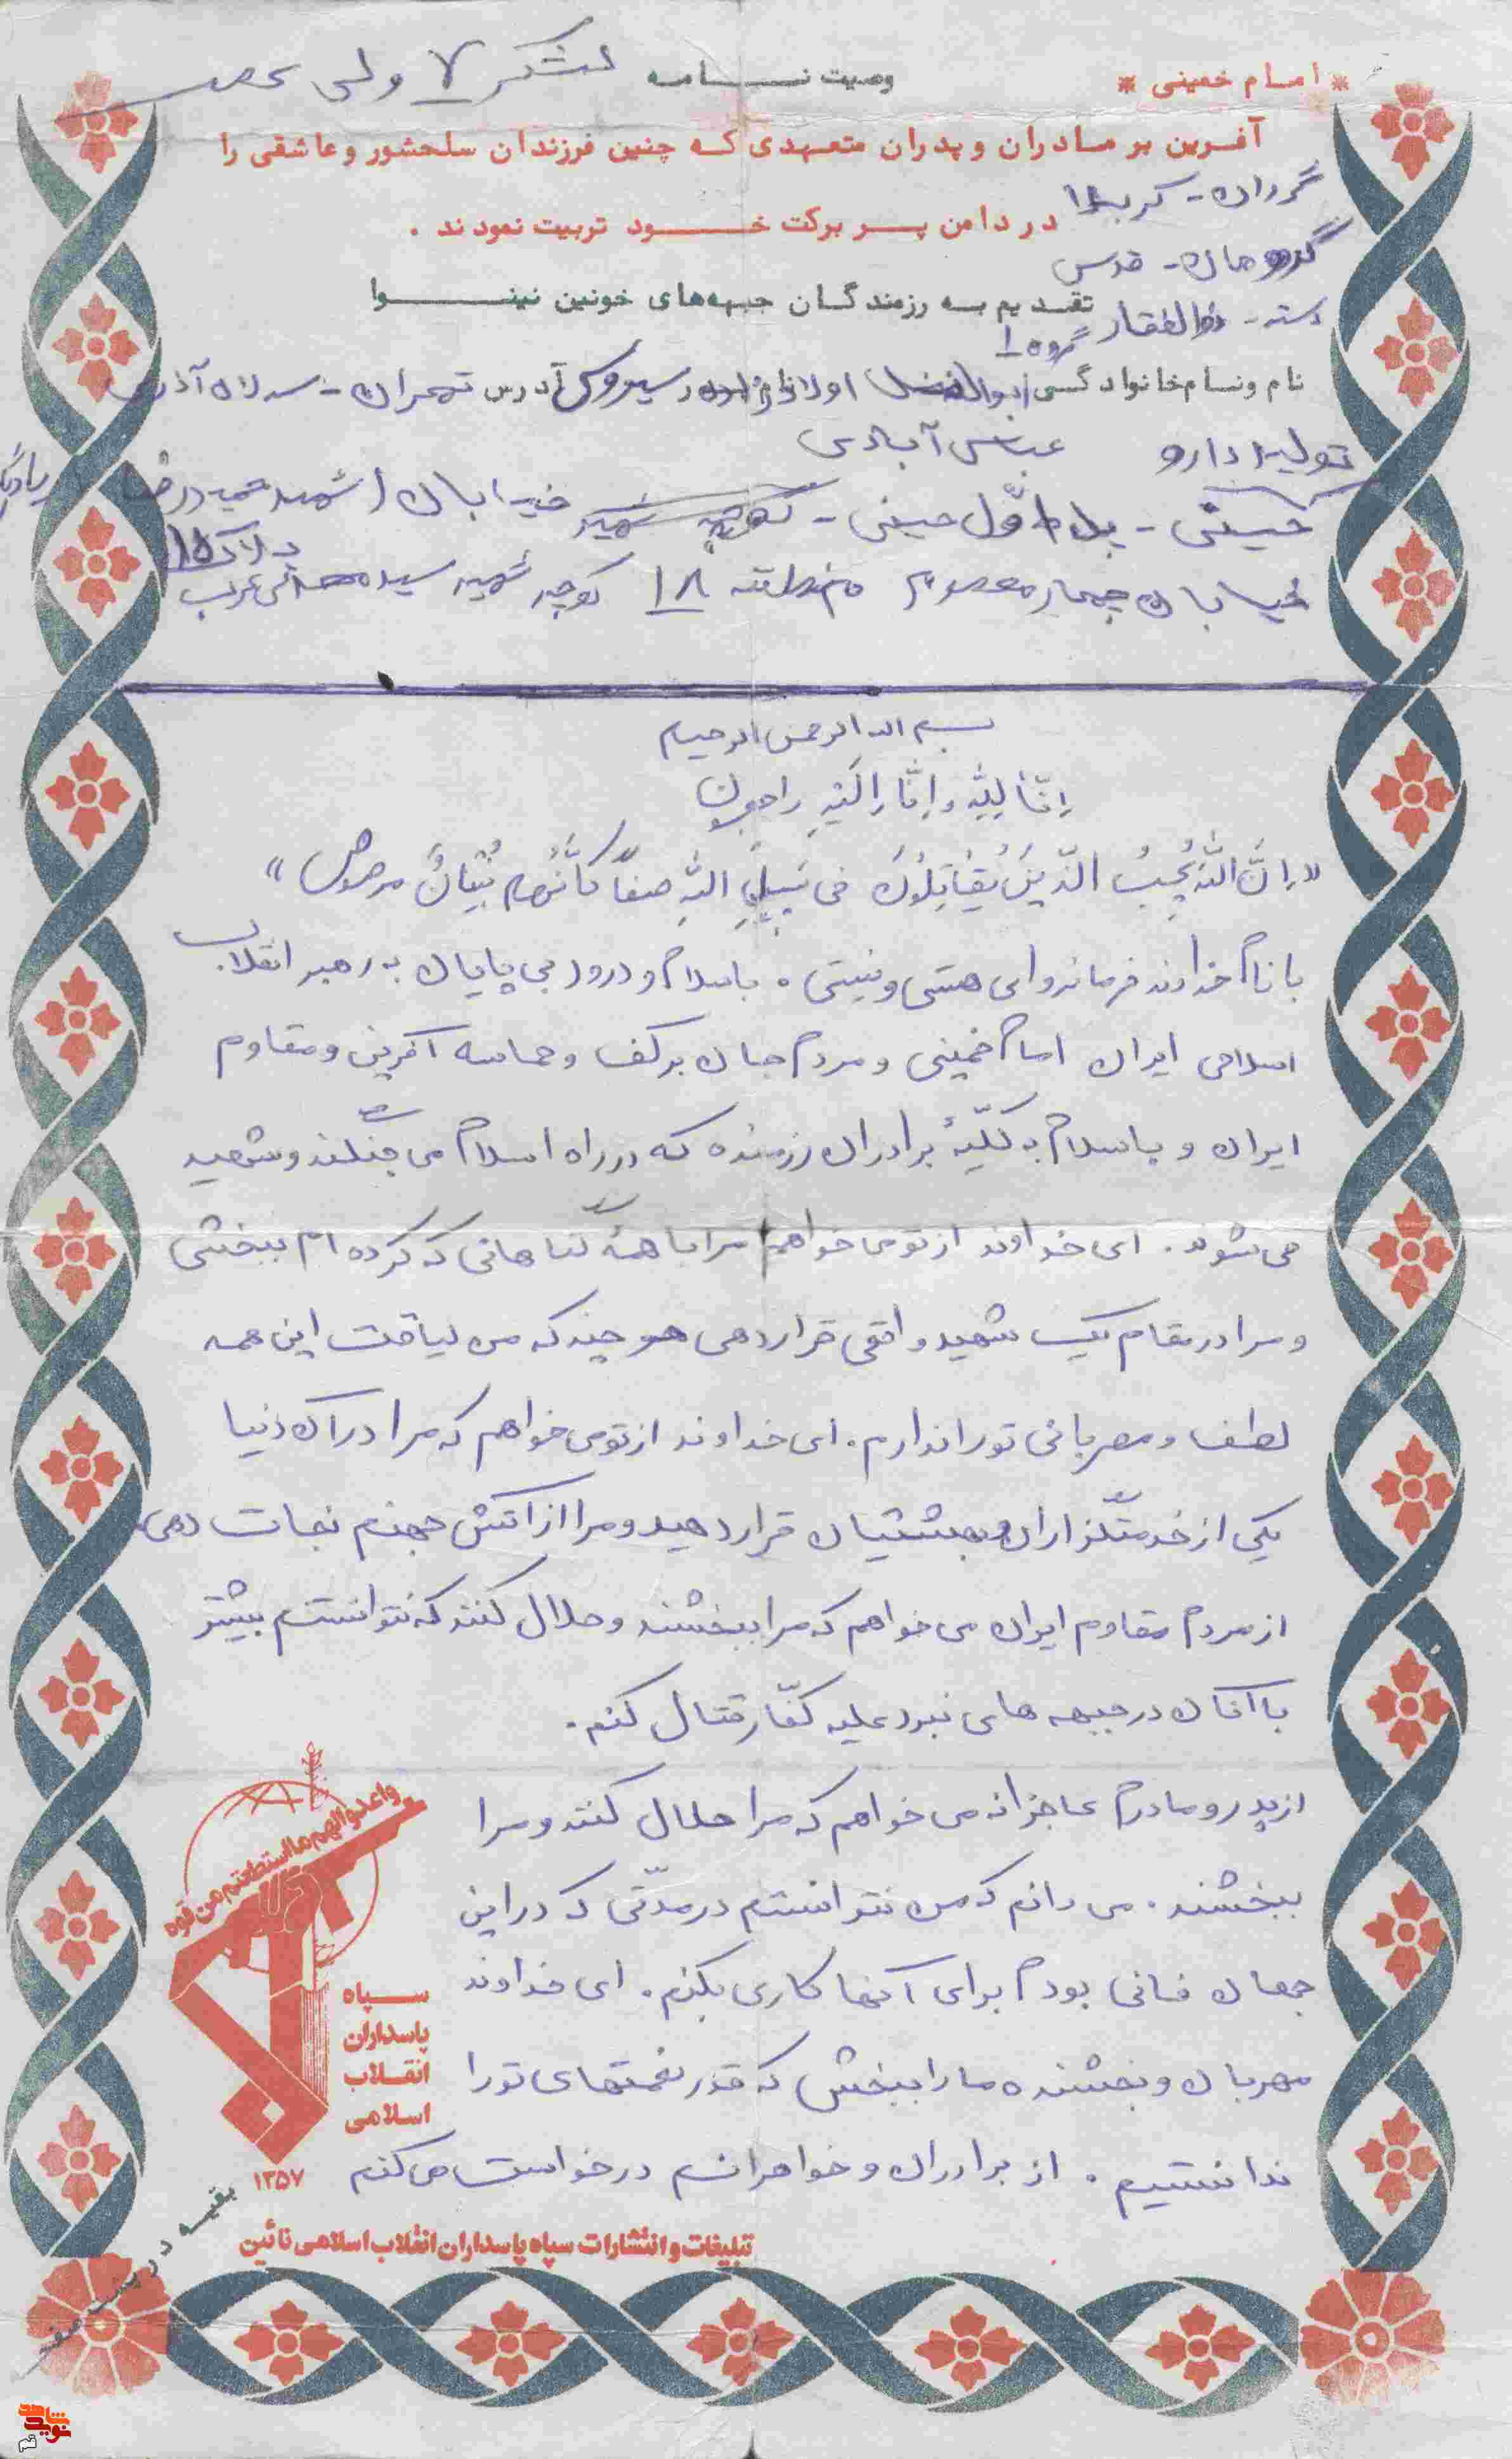 * امام خمینی *
وصیت نامه لشکر ۷ ولی عصر
آفرین بر مادران و پدران متعهدی که چنین فرزندان سلحشور و عاشقی را
گردان - کربلا
در دامن پر برکت خود تربیت نمودند .
گروهان - قدس
تقدیم به رزمندگان جبهه‌های خونین نینوا
دسته - ذوالفقار گروه ۱
نام و نام خانوادگی ابوالفضل آدرس تهران - سه راه آذری
عباس آبادی
تولید دارو
حسینی - پل اول حسینی - خیابان شهید حمیدرضا
پلاک ۱۵
خیابان چهار معصوم منطقه ۱۸ کوچه شهید سید
بسم الله الرحمن الرحیم
اِنّا لِلّهِ وَ اِنّا اِلَیْهِ راجعون
«اِنَّ اللّهَ یُحِبُ الَّذینَ یُقاتِلُونَ فی سَبیلِ اللّهِ صفاً کَاَنَّهُم بُنْیانٌ مرصوص»
با نام خداوند فرمانروای هستی و نیستی . با سلام و درود بی پایان به رهبر انقلاب
اسلامی ایران امام خمینی و مردم جان برکف و حماسه آفرین و مقاوم
ایران و با سلام به کلیّهٔ برادران رزمنده که در راه اسلام می جنگند و شهید
می شوند . ای خداوند از تو می خواهم مرا با همهٔ گناهانی که کرده ام ببخشی
و مرا در مقام یک شهید واقعی قرار دهی هر چند که من لیاقت این همه
لطف و مهربانی تو را ندارم . ای خداوند از تو می خواهم که مرا در آن دنیا
یکی از خدمتگزاران بهشتیان قرار دهید و مرا از آتش جهنم نجات دهی.
از مردم مقاوم ایران می خواهم که مرا ببخشند و حلال کنند که نتوانستم بیشتر
با آنان در جبهه های نبرد علیه کفّار قتال کنم .
از پدر و مادرم عاجزانه می خواهم که مرا حلال کنند و مرا
ببخشند . می دانم که من نتوانستم در مدّتی که در این
جهان فانی بودم برای آنها کاری بکنم . ای خداوند
مهربان و بخشنده ما را ببخش که قدر نعمتهای تو را
ندانستیم . از برادران و خواهرانم درخواست می کنم
واعدوا لهم ما استطعتم من قوه
سپاه
پاسداران
انقلاب
اسلامی
۱۳۵۷
بقیه در پشت صفحه
تبلیغات و انتشارات سپاه پاسداران انقلاب اسلامی نائین
نوید شاهد
قم